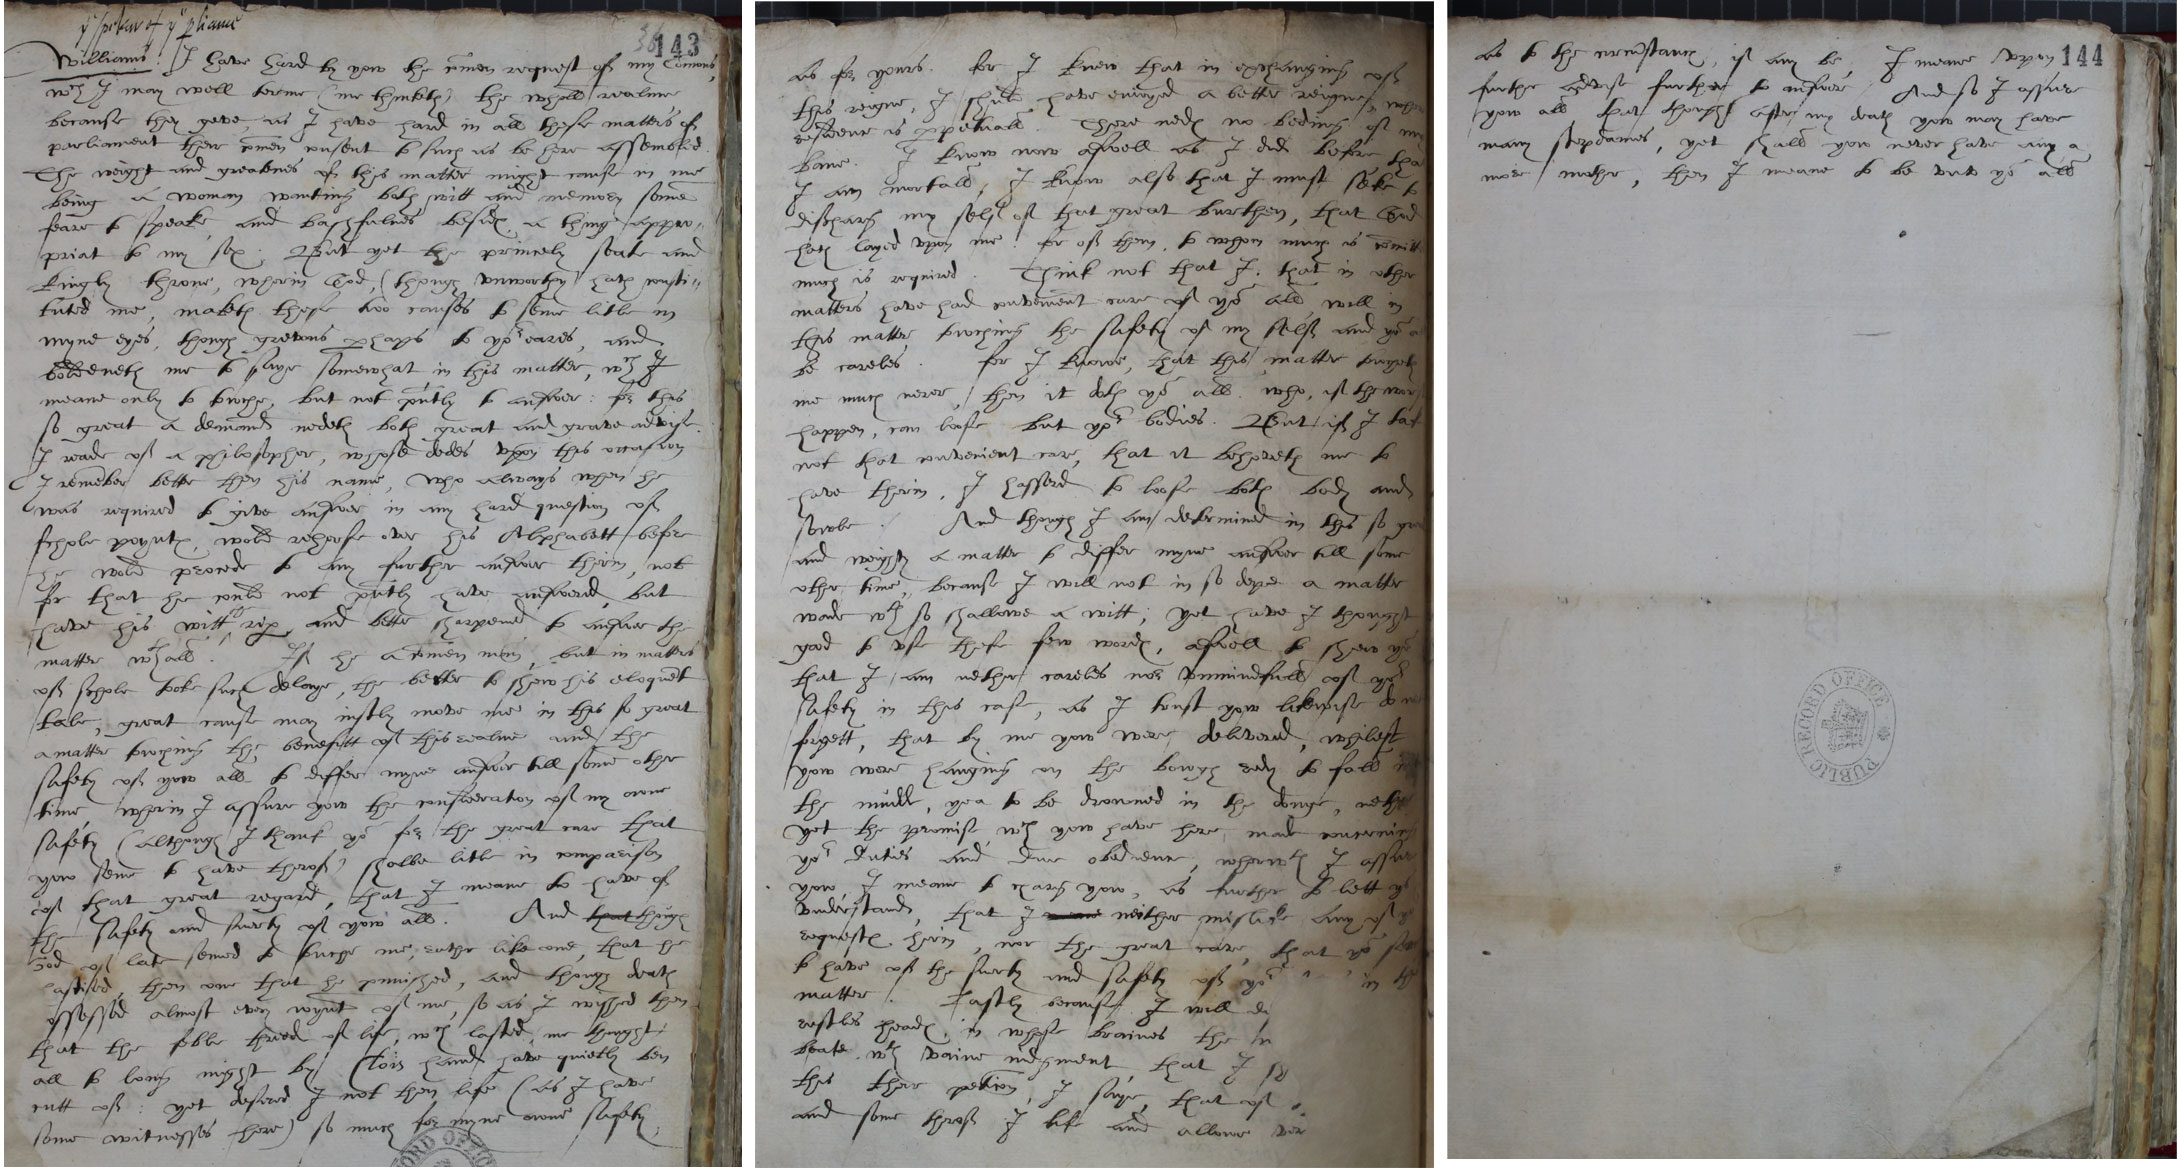 yᵉ speker of yᵉ pliament
36 143
Williams. I have hard by yow the comen request of my Comons,
wᶜʰ I may well terme (me thinketh) the whole realme
because they geve, as I have hard in all these matters of
parliament their comen consent to such as be here assembled.
The weight and greatenes of this matter might cause in me
being a woman wanting both witt and memory some
feare to speake, and bashfulnes besides, a thing appro-
priat to my sex. But yet the princely seate and
kingly throne, wherin God, (though unworthy) hath consti-
tuted me, maketh these two causes to seme litle in
myne eyes, though grevous phaps to yoʳ eares, and
boldeneth me to saye somewhat in this matter, wᶜʰ I
meane only to touche, but not pntly to answer: for this
so great a demand nedeth both great and grave advise.
I reade of a philosopher, whose dedes upon this occasion
I remember better then his name, who always when he
was required to give answer in any hard question of
schole poyntes, wold reherse over his Alphabett before
he wold procede to any further answer therin, not
for that he could not pntly have answered, but
have his witt the riper and better sharpened to answer the
matter wᵗʰ all. If he a comen man, but in matters
of schole toke such delaye, the better to shew his eloquent
tale, great cause may iustly move me in this so great
a matter touching the benefitt of this realme and the
safety of yow all to differ myne answer till some other
time wherin I assure yow the consideration of my owne
safety (although I thank yoᵘ for the great care that
yow seme to have therof) shalbe litle in comparison
of that great regard, that I meane to have of
the safety and surety of yow all. And that though
God of late semed to touche me, rather like one, that he
chastised, then one that he punished, and though death
possessed almost every ioynt of me, so as I wished then
that the feble thred of life, wᶜʰ lasted, me thought,
all to long might by Clois hand have quietly ben
cutt of: yet desired I not then life (as I have
some witnesses here) so much for myne owne safety,
as for yours. for I knew that in exchanging of
this reigne, I shuld have enioyed a better reigne, wher
residence is ppetuall. There nedes no boding of my
bane. I know now aswell as I did before that
I am mortall, I know also that I must seke to
discharg my self of that great burthen, that God
hath layed upon me: for of them, to whom much is comitt
much is required. Think not that I, that in other
matters have had convenient care of yoᵘ all will in
this matter touching the safety of my self and yoᵘ a
be careles. for I knowe, that this matter toucheth
me much nerer, then it doth yoᵘ all. who, if the wor
happen, can lose but yoʳ bodies. But if I tak
not that convenient care, that it behoveth me to
have therin, I hasserd to loose both body and
sowle. And though I am determined in this so gre
and weighty a matter to differ myne answer till some
other time, because I will not in so depe a matter
wade wᵗʰ so shallowe a witt; yet have I thought
good to use these few wordes, aswell to shew yoᵘ
that I am nether careles nor unmindfull of yoʳ
safety in this case, as I trust yow likewise do no
forgett, that by me yow were delivered, whilest
yow were hanging on the bowgh redy to fall int
the mudd, yea to be drowned in the donge, nether
yet the promise wᶜʰ yow have here made concerning
yoʳ duties and due obedience, wherwᵗʰ I assure
yow, I meane to charg yow, as further to lett yoᵘ
understand, that I neither mislike any of yoʳ
requestes herin, nor the great care, that yoᵘ seme
to have of the surety and safety of yoʳ in th
matter. Lastly because I will di
restles heades, in whose braines the n
beate wᵗʰ vaine iudgment, that I sh
this their peticion, I saye, that of
and some therof I like and allowe ver
144
as to the circumstances, if any be, I meane upon
further advise further to answer. And so I assure
yow all that though after my death yow may have
many stepdames, yet shall yow never have any a
more mother, then I meane to be unto yoᵘ all
RECORD OFFICE
PUBLIC RECORD OFFICE